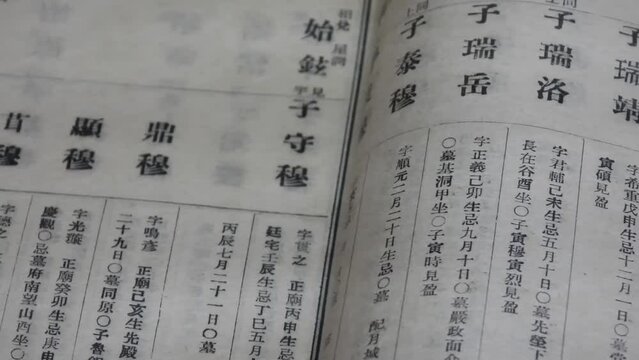 子瑞靖
字希重戊申生忌十二月
寅碩見盈
子瑞洛
字君輔己未生忌五月十日〇墓先塋
長在谷酉坐〇子寅穆寅烈見盈
子瑞岳
字正義己卯生忌九月十日〇墓嚴政面
〇墓基洞甲坐〇子寅時見盈
上同
子泰穆
字順元二月二十日生忌〇墓 配月城
始鉉
見宇
子守穆
字世之 正廟丙申生忌
廷宅壬辰生忌丁巳五月
丙辰七月二十一日〇墓
鼎穆
字鳴彦 正廟己亥生先殿
二十九日〇墓同原〇子魯
顯穆
字光璇 正廟癸卯生忌庚申
慶觀〇忌墓府南望山西坐〇
穆